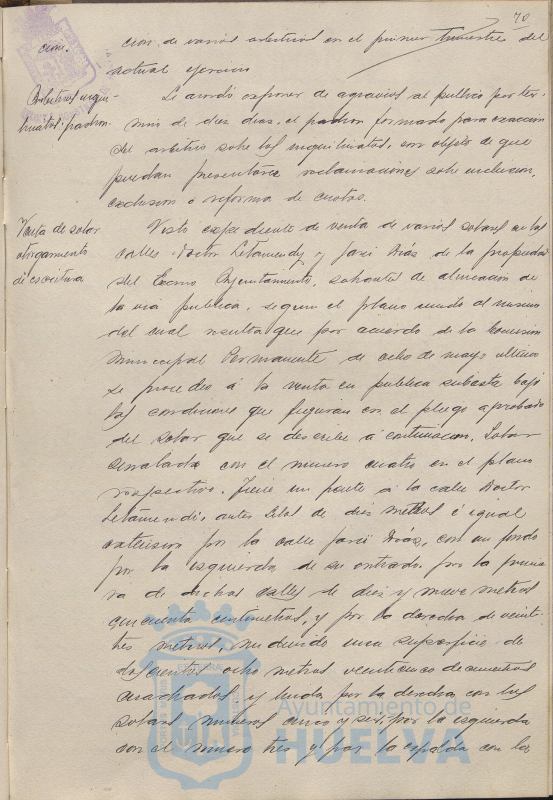 70
cion de varios arbitrios en el primer trimestre del
actual ejercicio
cion.
Arbitrios inqui-
linatos: padron.
Se acordó exponer de agravios al publico por ter-
mino de diez dias, el padron formado para exaccion
del arbitrio sobre los inquilinatos, con objeto de que
puedan presentarse reclamaciones sobre inclusion,
exclusion o reforma de cuotas.
Venta de solar
otorgamiento
de escritura
Visto expediente de venta de varios solares en las
calles Doctor Letamendy y José Diáz de la propiedad
del Excmo Ayuntamiento, sobrantes de alineacion de
la via publica, segun el plano unido al mismo
del cual resulta que por acuerdo de la Comision
Municipal Permanente de ocho de mayo ultimo
se procedio á la venta en publica subasta bajo
las condiciones que figuran en el pliego aprobado
del solar que se describe á continuacion. Solar
señalado con el numero cuatro en el plano
respectivo. Tiene un frente a la calle Doctor
Letamendi, antes de diez metros é igual
extension por la calle José Diáz, con un fondo
por la izquierda de su entrada por la prime-
ra de dichas calles de diez y nueve metros
cincuenta centimetros, y por la derecha de veinti-
tres metros, midiendo una superficie de
doscientos ocho metros veinticinco decimetros
cuadrados y linda por la derecha con los
solares numeros cinco y seis, por la izquierda
con el numero tres y por la espalda con la
Ayuntamiento de
HUELVA